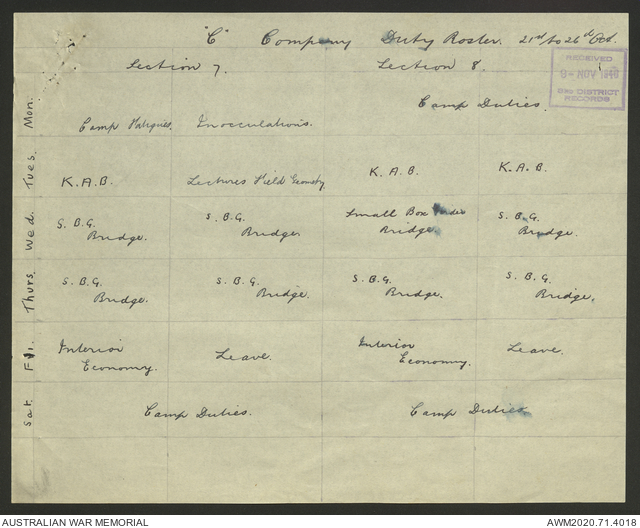 "C" Company Duty Roster. 21st to 26th Oct
Section 7. Section 8.
RECEIVED
DISTRICT
RECORDS
Mon. Camp Fatigues. Inocculations. Camp Duties.
Tues. K.A.B. Lectures Field K.A.B. K.A.B.
Wed. S.B.G. S.B.G. Small Box S.B.G.
Bridge. Bridge. Bridge. Bridge.
Thurs. S.B.G. S.B.G. S.B.G. S.B.G.
Bridge. Bridge. Bridge. Bridge.
Fri. Interior Leave. Interior Leave.
Economy. Economy.
Sat. Camp Duties. Camp Duties
AUSTRALIAN WAR MEMORIAL AWM2020.71.4018